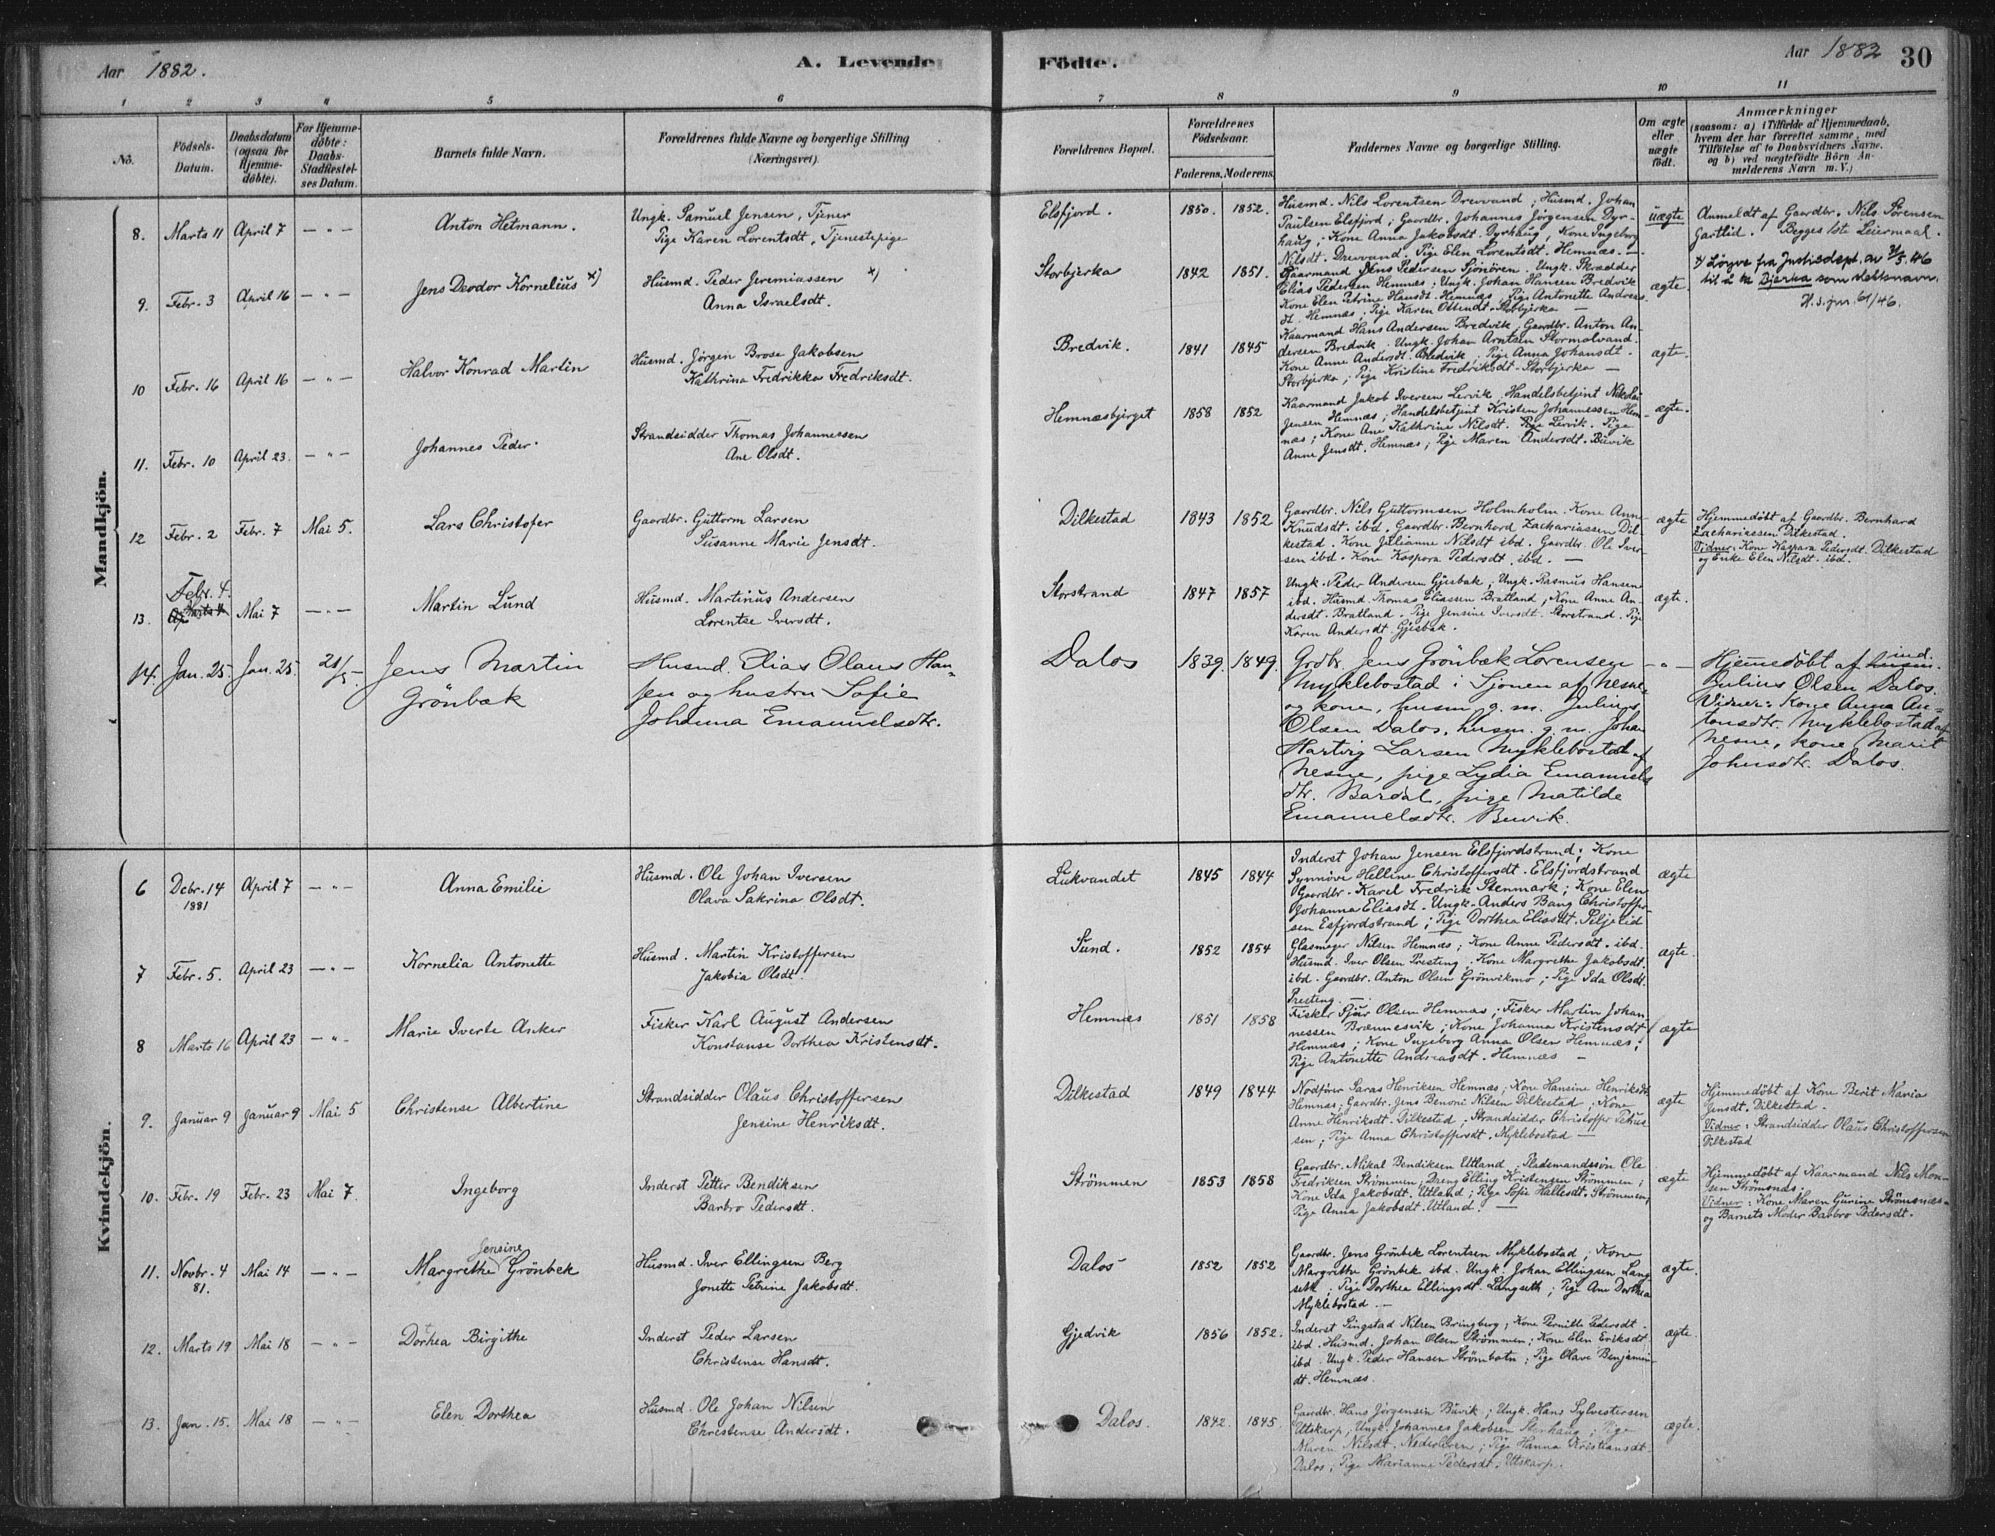 Aar 1882. A. Levende Födte. Aar 1882 30
1 2 3 4 5 6 7 8 9 10 11
No.
Födsels-Datum.
Daabsdatum (ogsaa for Hjemme-döbte).
For Hjemme-döbte: Daabs-Stadfæstel-ses Datum.
Barnets fulde Navn.
Forældrenes fulde Navne og borgerlige Stilling (Næringsvei).
Forældrenes Bopæl.
Forældrenes Födselsaar.
Faderens. Moderens.
Faddernes Navne og borgerlige Stilling.
Om ægte eller uægte födt.
Anmærkninger
(saasom: a) i Tilfælde af Hjemmedaab,
hvem der har forrettet samme, med
Tilföielse af to Daabsvidners Navne,
og b) ved uægtefödte Börn An-
melderens Navn m. V.)
Mandkjön.
8. Marts 11 April 7 — " — Anton Hetmann.
Ungk. Samuel Jensen, Tjener
Pige Karen Lorentsdt, Tjenestepige
Elsfjord. 1850. 1852.
Husmd. Nils Lorentsen Drevvand; Husmd. Johan
Paulsen Elsfjord; Gaardbr. Johannes Jörgensen Dyr-
haug; Kone Anna Jakobsdt. Dyrhaug; Kone Ingeborg
Nilsdt. Drevvand. Pige Elen Lorentsdt. Hemnæs. —
uægte
Anmeldt af Gaardbr. Nils Sörensen
Gartlid. Begges 1ste Leiermaal.
9. Febr. 3 April 16 — " — Jens Deodor Kornelius x)
Husmd. Peder Jeremiassen x)
Anna Israelsdt.
Storbjerka 1842 1851.
Kaarmand Jens Pedersen Sjönören. Ungk. Skrædder
Elias Pedersen Hemnæs; Ungk. Johan Hansen Bredvik
Kone Elen Petrine Hansdt. Hemnæs; Pige Antonette Andreas-
dt. Hemnæs; Pige Karen Olsendt. Storbjerka —
ægte.
x) Löyve fra Justisdept. av 3/5.46
til å ta Bjerka som slektsnavn.
H.s. jnr. 61/46.
10 Febr. 16 April 16 — " — Halvor Konrad Martin
Husmd. Jörgen Brose Jakobsen
Kathrina Fredrikka Fredriksdt.
Bredvik. 1841 1845
Kaarmand Hans Andersen Bredvik, Gaardbr. Anton An-
dersen Bredvik. Ungk. Johan Arntsen Stormolvand.
Kone Anne Andersdt. Bredvik; Pige Anna Johansdt.
Storbjerka; Pige Kristine Fredriksdt. Storbjerka —
ægte.
11. Febr. 10 April 23. — " — Johannes Peder.
Strandsidder Thomas Johannessen
Ane Olsdt.
Hemnæsbjerget 1858 1852
Kaarmand Jakob Iversen Lervik; Handelsbetjent Nikolai
Jensen Hemnæs; Handelsbetjent Kristen Johannessen Hem-
næs; Kone Ane Kathrine Nilsdt. Pige Lervik. Pige
Anne Jensdt. Hemnæs; Pige Maren Andersdt. Buvik
ægte.
12 Febr. 2 Febr. 7 Mai 5. Lars Christofer
Gaardbr. Guttorm Larsen
Susanne Marie Jensdt.
Dilkestad 1843 1852
Gaardbr. Nils Guttormsen Holmholm. Kone Anne
Knudsdt. ibd. Gaardbr. Bernhard Zachariassen Dil-
kestad. Kone Julianne Nilsdt ibd. Gaardbr. Ole Iver-
sen ibd. Kone Kaspara Pedersdt. ibd. —
ægte
Hjemmedöbt af Gaardbr. Bernhard
Zachariassen Dilkestad.
Vidner: Kone Kaspara Pedersdt. Dilkestad
og Enke Elen Nilsdt. ibd.
13. Febr. 4. Mai 7 — " — Martin Lund
Husmd. Martinus Andersen
Lorentse Iversdt.
Storstrand 1847 1857
Ungk. Peder Andersen Gjesbak; Ungk. Rasmus Hansen
ibd. Husmd. Thomas Eliassen Bratland; Kone Anne An-
dersdt. Bratland. Pige Jensine Iversdt. Storstrand. Pige
Karen Andersdt Gjesbak.
ægte.
14. Jan. 25. Jan. 25. 28/5 — Jens Martin
Grönbæk
Husmd. Elias Olaus Han-
sen og hustru Sofie
Johanna Emanuelsdtr.
Dalos 1839. 1849.
Grdbr. Jens Grönbæk Lorensen
Myklebostad i Sjonen af Nesne
og kone, husm. g. m. Julius
Olsen Dalos, husm. g. m. Johan
Hartvig Larsen Myklebostad af
Nesne, pige Lydia Emanuels-
dtr. Bardal, pige Matilde
Emanuelsdtr. Buvik.
— " —
Hjemmedöbt af ind.
Julius Olsen Dalos.
Vidner: Kone Anna An-
tonsdtr. Myklebostad af
Nesne, kone Marit
Johnsdtr. Dalos.
Kvindekjön.
6 Debr. 14 1881 April 7 — " — Anna Emilie
Husmd. Ole Johan Iversen
Olava Sakrina Olsdt.
Lukvandet 1845 1844
Inderst Johan Jensen Elsfjordstrand; Kone
Synnöve Helline Christoffersdt. Elsfjordstrand
Gaardbr. Karel Fredrik Stenmark; Kone Elen
Johanna Eliasdt. Ungk. Anders Bang Christoffer-
sen Esfjordstrand; Pige Dorthea Eliasdt. Siljelid
ægte
7 Febr. 5. April 23 — " — Kornelia Antonette
Husmd. Martin Kristoffersen
Jakobia Olsdt
Sund. 1852 1854
Glasmager Nilsen Hemnæs; Kone Anne Pedersdt. ibd.
Husmd. Iver Olsen Presteng. Kone Margrethe Jakobsdt.
ibd. Gaardbr. Anton Olsen Grönvikmo; Pige Ida Olsdt.
Presteng. —
ægte.
8 Marts 16 April 23 — " — Marie Iverte Anker
Fisker Karl August Andersen
Konstanse Dorthea Kristensdt.
Hemnæs 1851 1858
Fisker Sjur Olsen Hemnæs; Fisker Martin Johan
nessen Brænnesvik; Kone Johanna Kristensdt
Hemnæs; Kone Ingeborg Anna Olsen Hemnæs;
Pige Antonette Andreasdt. Hemnæs —
ægte
9. Januar 9 Januar 9 Mai 5 Christense Albertine
Strandsidder Olaus Christoffersen
Jensine Henriksdt.
Dilkestad 1849 1844
Nodförer Saras Henriksen Hemnæs; Kone Hansine Henriksdt
Hemnæs; Gaardbr. Jens Benoni Nilsen Dilkestad; Kone
Anne Henriksdt. Dilkestad. Strandsidder Christoffer Petrus-
sen; Pige Anna Christoffersdt. Myklebostad —
ægte
Hjemmedöbt af Kone Berit Maria
Jensdt. Dilkestad.
Vidner: Strandsidder Olaus Christoffersen
Dilkestad
10. Febr. 19 Febr. 23 Mai 7. Ingeborg
Inderst Petter Bendiksen
Barbro Pedersdt.
Strömmen 1853 1858
Gaardbr. Mikal Bendiksen Utland; Pladsmandssön Ole
Fredriksen Strömmen; Dreng Elling Kristensen Strömmen;
Kone Ida Jakobsdt. Utland; Pige Sofie Hallesdt. Strömmen;
Pige Anna Jakobsdt. Utland. —
ægte
Hjemmedöbt af Kaarmand Nils Mon-
sen Strömsnæs.
Vidner: Kone Maren Gurine Strömsnæs
og Barnets Moder Barbro Pedersdt.
11. Novbr. 4 81. Mai 14 — " — Margrethe Jensine Grönbek
Husmd. Iver Ellingsen Berg
Jonette Petrine Jakobsdt.
Dalos 1852 1852
Gaardbr. Jens Grönbek Lorentsen Myklebostad; Kone
Margrethe Grönbek ibd. Ungk. Johan Ellingsen Lang
seth; Pige Dorthea Ellingsdt. Langseth; Pige Ane Dorthea
Myklebostad. —
ægte.
12. Marts 19 Mai 18 — " — Dorthea Birgithe
Inderst Peder Larsen
Christense Hansdt.
Gjedvik 1856 1852.
Inderst Pingstad Nilsen Bringberg; Kone Pernille Pedersdt.
ibd. Husmd. Johan Olsen Strömmen; Kone Elen Eriksdt
ibd. Ungk. Peder Hansen Strömbotn; Pige Olave Benjamin-
dt. Hemnæs.
ægte.
13. Jan. 15. Mai 18 — " — Elen Dorthea
Husmd. Ole Johan Nilsen
Christense Andersdt.
Dalos. 1842. 1845.
Gaardbr. Hans Jörgensen Buvik; Ungk. Hans Sylvestersen
Utskarp; Ungk. Johannes Jakobsen Stenhaug; Pige
Maren Nilsdt. Nederleren; Pige Hanna Kristiansdt.
Dalos; Pige Marianne Pedersdt. Utskarp.
ægte.